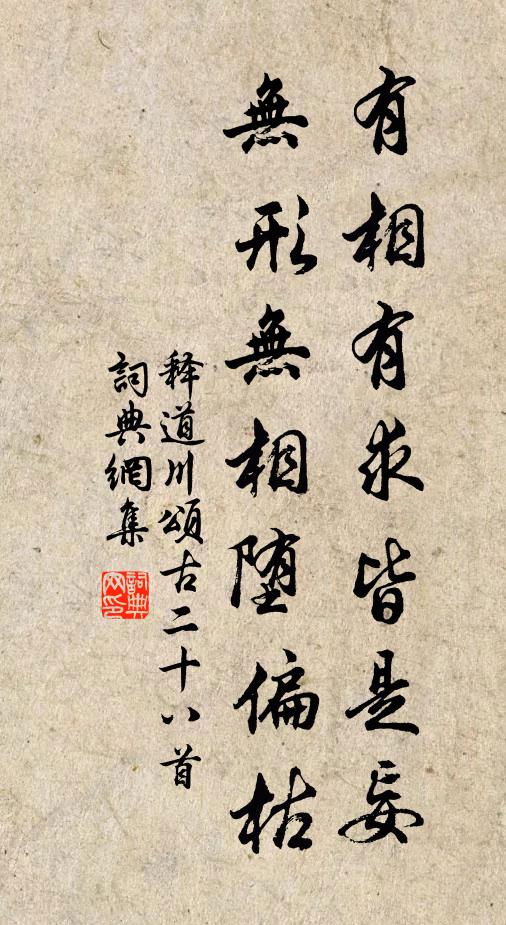 有相有求皆是妄
無形無相堕偏枯
释道川頌古二十八首
詞典網集
詞典網印